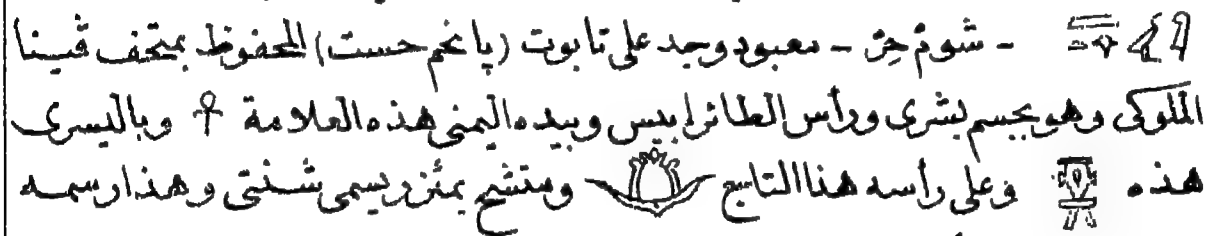 - شومْ حِرْ - معبود وجد على تابوت (پانحم حست) المحفوظ بمتحف ڤينا
الملوكى وهو بجسم بشرى ورأس الطائر ابيس وبيده اليمنى هذه العلامة ☥ وباليسرى
هذه وعلى رأسه هذا التاج ومتشح بمئزر يسمى شنتى وهذا رسمه